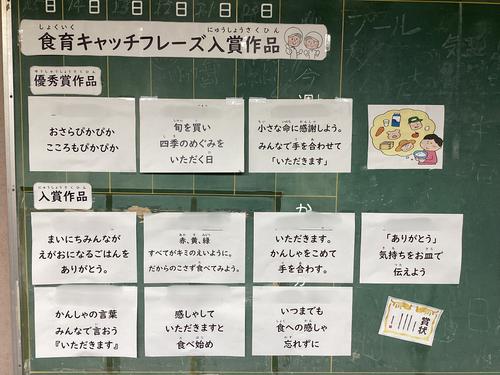 食育キャッチフレーズ入賞作品
優秀賞作品
おさらぴかぴか
こころもぴかぴか
旬を買い
四季のめぐみを
いただく日
小さな命に感謝しよう。
みんなで手を合わせて
「いただきます」
入賞作品
まいにちみんなが
えがおになるごはんを
ありがとう。
赤、黄、緑
すべてがキミのえいように。
だからのこさず食べてみよう。
いただきます。
かんしゃをこめて
手を合わす。
「ありがとう」
気持ちをお皿で
伝えよう
かんしゃの言葉
みんなで言おう
『いただきます』
感じゃして
いただきますと
食べ始め
いつまでも
食への感しゃ
忘れずに
賞状
プール